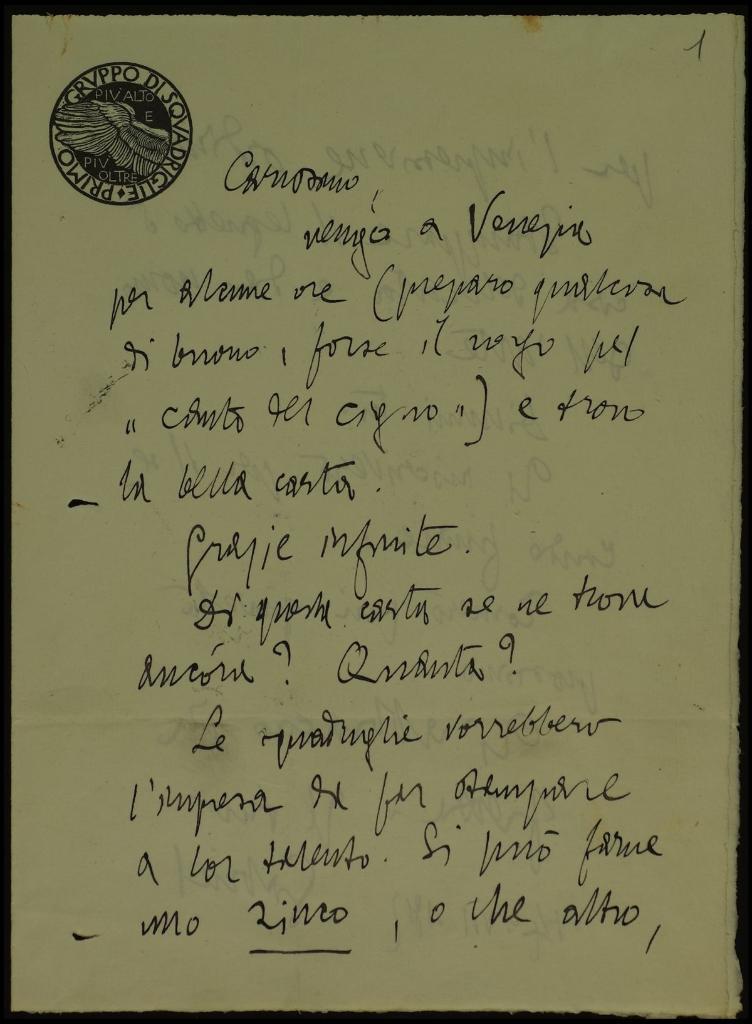 1
PRIMO GRVPPO DI SQVADRIGLIE
PIV ALTO
E
PIV
OLTRE
Carissimo,
vengo a Venezia
per alcune ore (preparo qualcosa
di buono, forse il rogo pel
"canto del cigno") e trovo
la bella carta.
Grazie infinite.
Di questa carta se ne trova
ancóra? Quanta?
Le squadriglie vorrebbero
l'impresa da far stampare
a lor talento. Si può farne
uno zinco, o che altro,